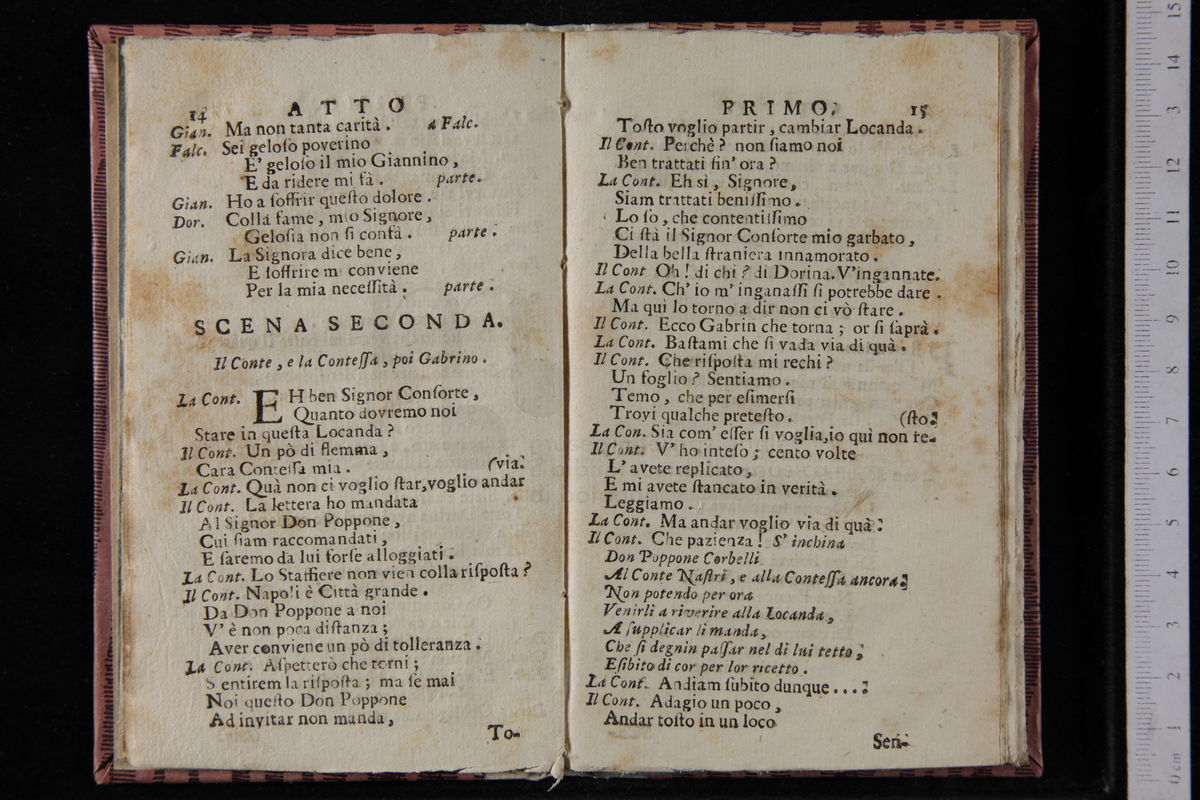 14 ATTO
Gian. Ma non tanta carità. a Falc.
Falc. Sei geloſo poverino
E' geloſo il mio Giannino,
E da ridere mi fà. parte.
Gian. Ho a ſoffrir queſto dolore.
Dor. Colla fame, mio Signore,
Geloſia non ſi confà. parte.
Gian. La Signora dice bene,
E ſoffrire mi conviene
Per la mia neceſſità. parte.
SCENA SECONDA.
Il Conte, e la Conteſſa, poi Gabrino.
La Cont. EH ben Signor Conſorte,
Quanto dovremo noi
Stare in queſta Locanda?
Il Cont. Un pò di flemma,
Cara Conteſſa mia. (via.
La Cont. Quà non ci voglio ſtar, voglio andar
Il Cont. La lettera ho mandata
Al Signor Don Poppone,
Cui ſiam raccomandati,
E ſaremo da lui forſe alloggiati.
La Cont. Lo Staffiere non vien colla riſpoſta?
Il Cont. Napoli è Città grande.
Da Don Poppone a noi
V'è non poca diſtanza;
Aver conviene un pò di tolleranza.
La Cont. Aſpetterò che torni;
Sentirem la riſpoſta; ma ſe mai
Noi queſto Don Poppone
Ad invitar non manda,
To-
PRIMO. 15
Toſto voglio partir, cambiar Locanda.
Il Cont. Perchè? non ſiamo noi
Ben trattati ſin' ora?
La Cont. Eh sì, Signore,
Siam trattati beniſſimo.
Lo ſo, che contentiſſimo
Ci ſtà il Signor Conſorte mio garbato,
Della bella ſtraniera innamorato.
Il Cont Oh! di chi? di Dorina. V'ingannate.
La Cont. Ch' io m' inganaſſi ſi potrebbe dare.
Ma quì lo torno a dir non ci vò ſtare.
Il Cont. Ecco Gabrin che torna; or ſi ſaprà.
La Cont. Baſtami che ſi vada via di quà.
Il Cont. Che riſpoſta mi rechi?
Un foglio? Sentiamo.
Temo, che per eſimerſi
Trovi qualche preteſto. (ſto.
La Con. Sia com' eſſer ſi voglia, io quì non re-
Il Cont. V' ho inteſo; cento volte
L' avete replicato,
E mi avete ſtancato in verità.
Leggiamo.
La Cont. Ma andar voglio via di quà.
Il Cont. Che pazienza! S' inchina
Don Poppone Corbelli
Al Conte Naſtri, e alla Conteſſa ancora.
Non potendo per ora
Venirli a riverire alla Locanda,
A ſupplicar li manda,
Che ſi degnin paſſar nel di lui tetto,
Eſibito di cor per lor ricetto.
La Cont. Andiam ſubito dunque....
Il Cont. Adagio un poco,
Andar toſto in un loco
Sen-
15
14
13
12
11
10
9
8
7
6
5
4
3
2
1
0 cm